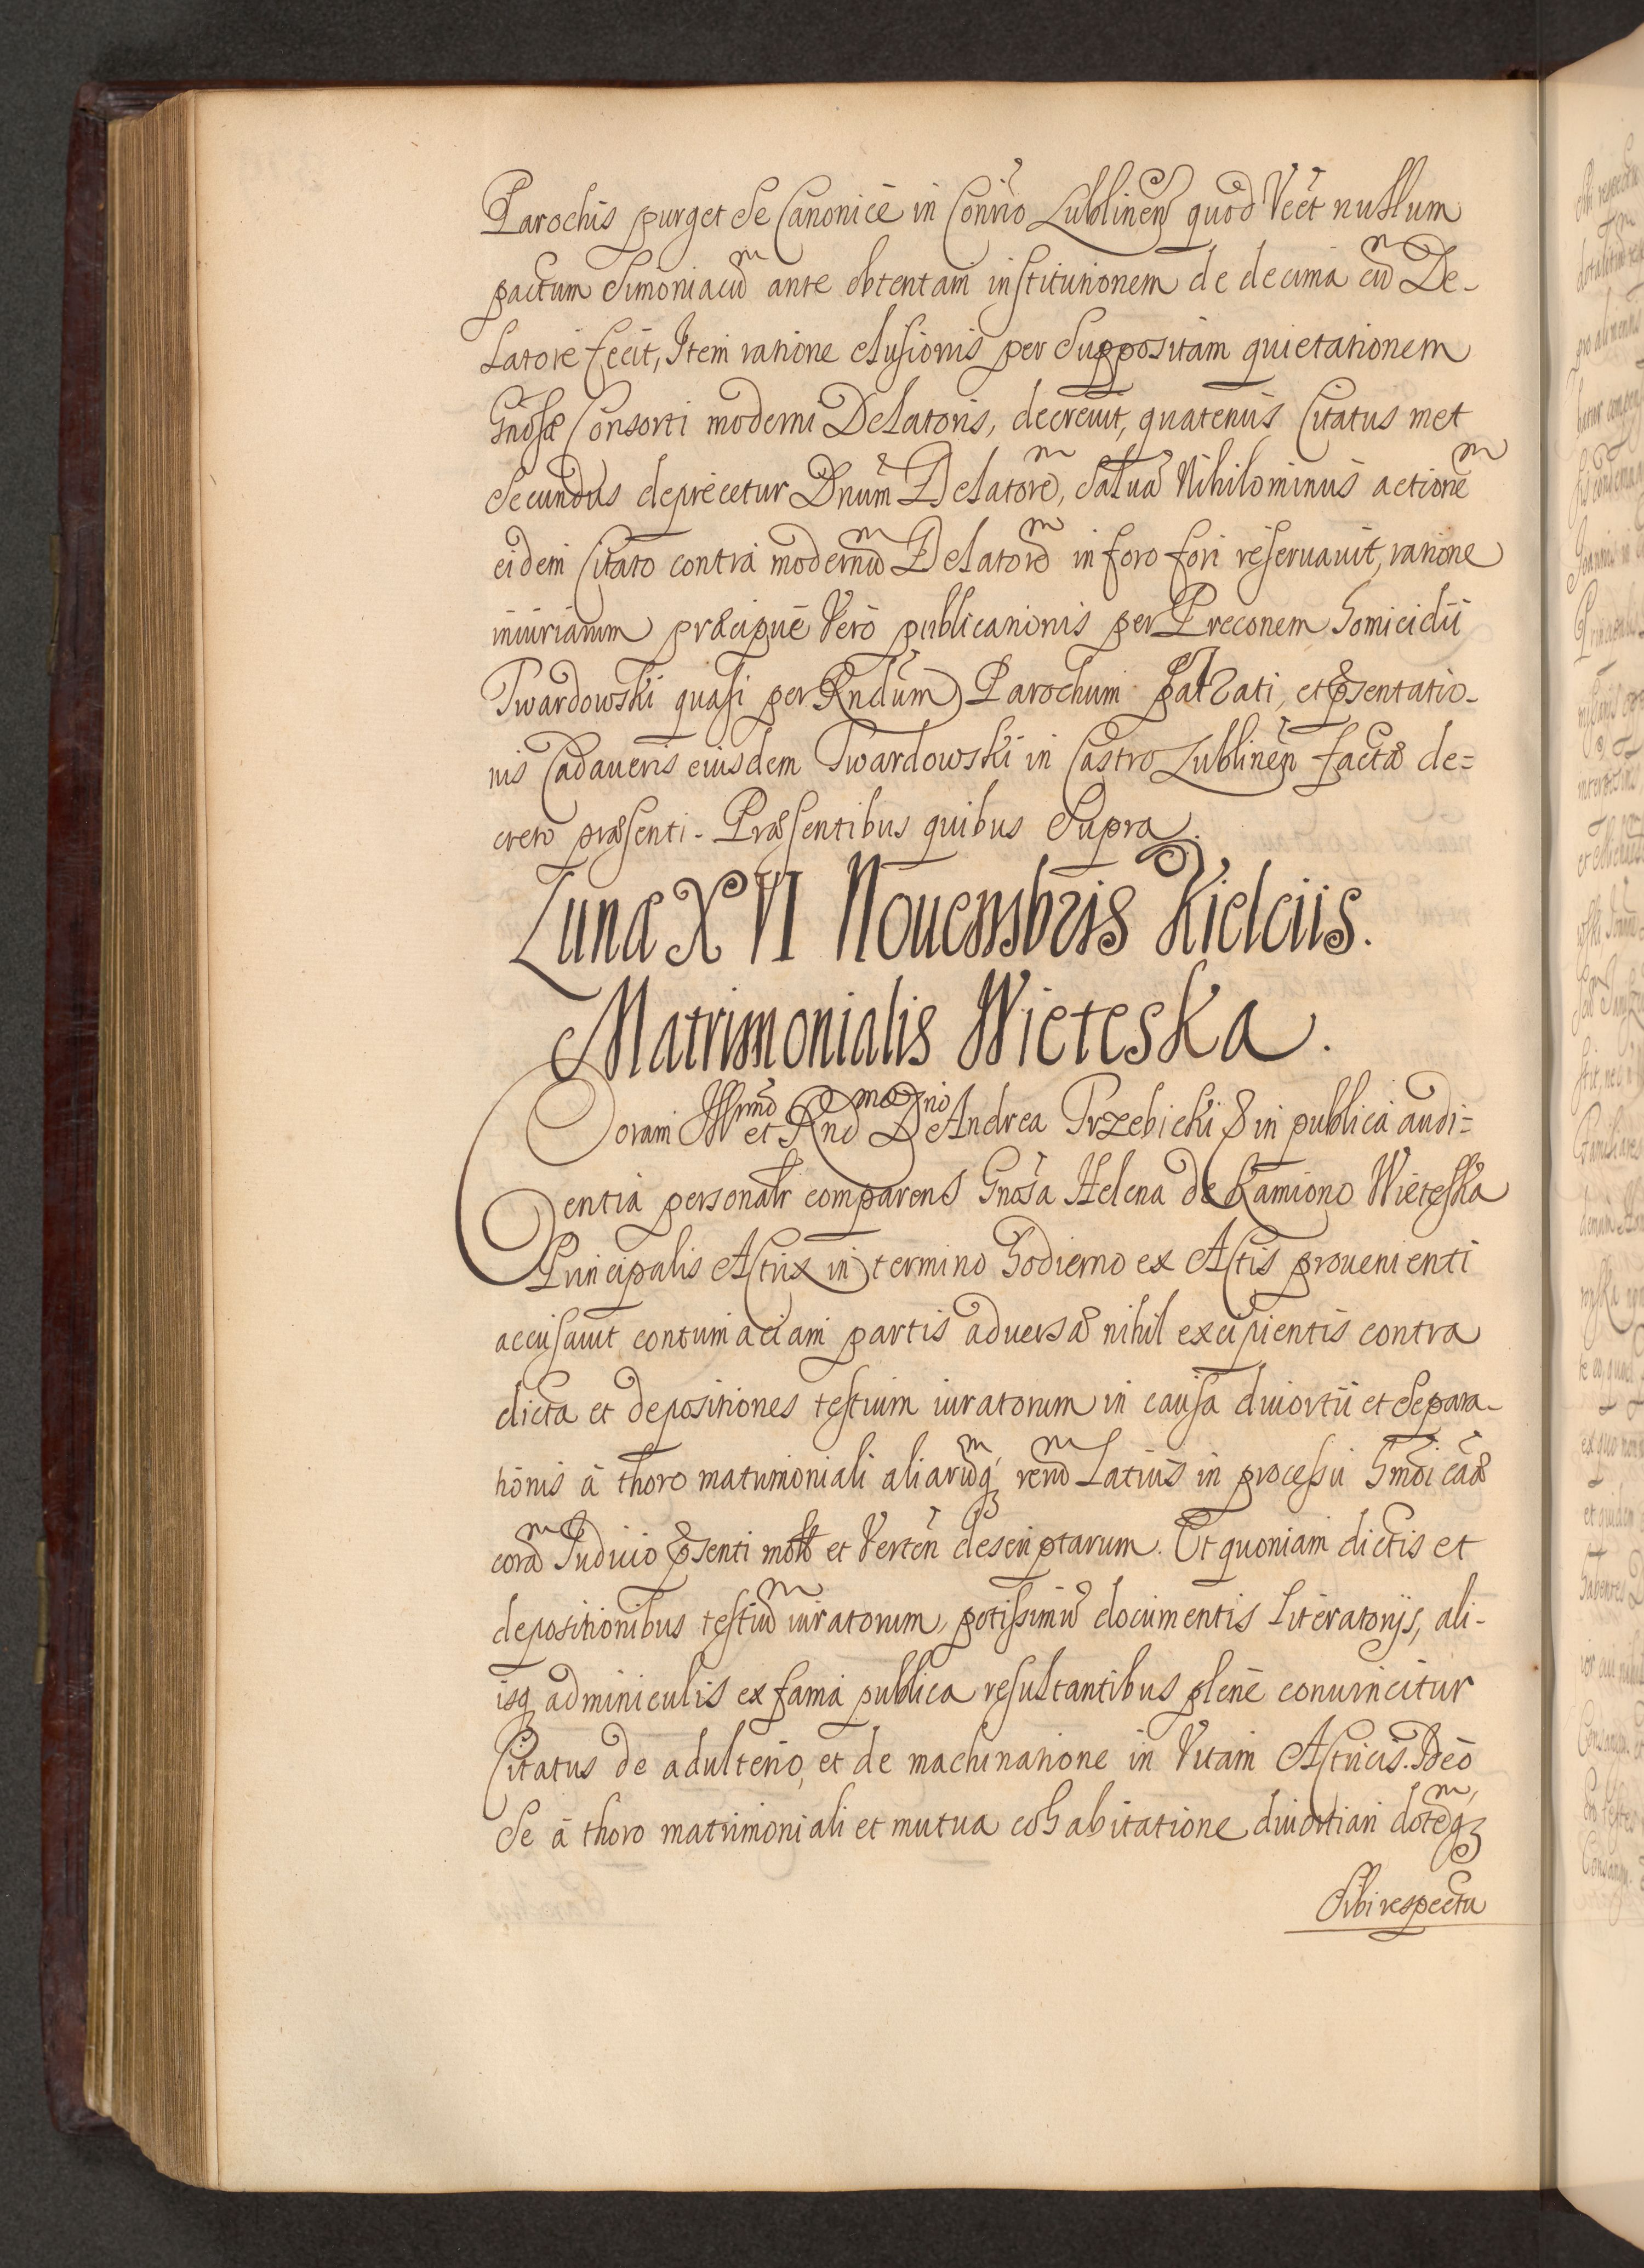 Parochis purget se Canonicè in Conřio Lublinen̄ quod Veēt nullum
pactum Simoniacū ante obtentam institutionem de decima cū De-
latore fecit, Item ratione elusionis per suppositam quietationem
Gnōsæ Consorti moderni Delatoris, decreuit, quatenus Citatus met
secundus deprecetur Dnūm Delatorē, salua nihilominus actionē
eidem Citato contra modernū Delatorē in foro fori reseruauit, ratione
iniuriarum præcipuè Verò publicationis per Preconem homicidii
Twardowski quasi per Rndūm Parochum patrati, et pn̄sentatio-
nis Cadaueris eiusdem Twardowski in Castro Lublinen̄ factæ de=
creto præsenti. Præsentibus quibus supra.
Lunæ XVI Nouembris Kielciis.
Matrimonialis Wieteska.
Coram Illmō et Rndmō Dno Andrea Trzebicki & in publica audi=
entia personalr comparens Gnōsa Helena de Kamiono Wieteska
Principalis Actrix in termino hodierno ex Actis prouenienti
accusauit contumaciam partis aduersæ nihil excipientis contra
dicta et depositiones testium iuratorum in causa diuortii et separa-
tionis à thoro matrimoniali aliarūq; rerū latius in processu hmōi cāæ
corā Iudicio pn̄senti mot et Verten̄ descriptarum. Et quoniam dictis et
depositionibus testiū iuratorum, potissimū documentis literatorijs, ali-
isq; adminiculis ex fama publica resultantibus plenè conuincitur
Citatus de adulterio, et de machinatione in Vitam Actricis. Ideò
se à thoro matrimoniali et mutua cohabitatione diuortiari dotēq;
sibi respectu